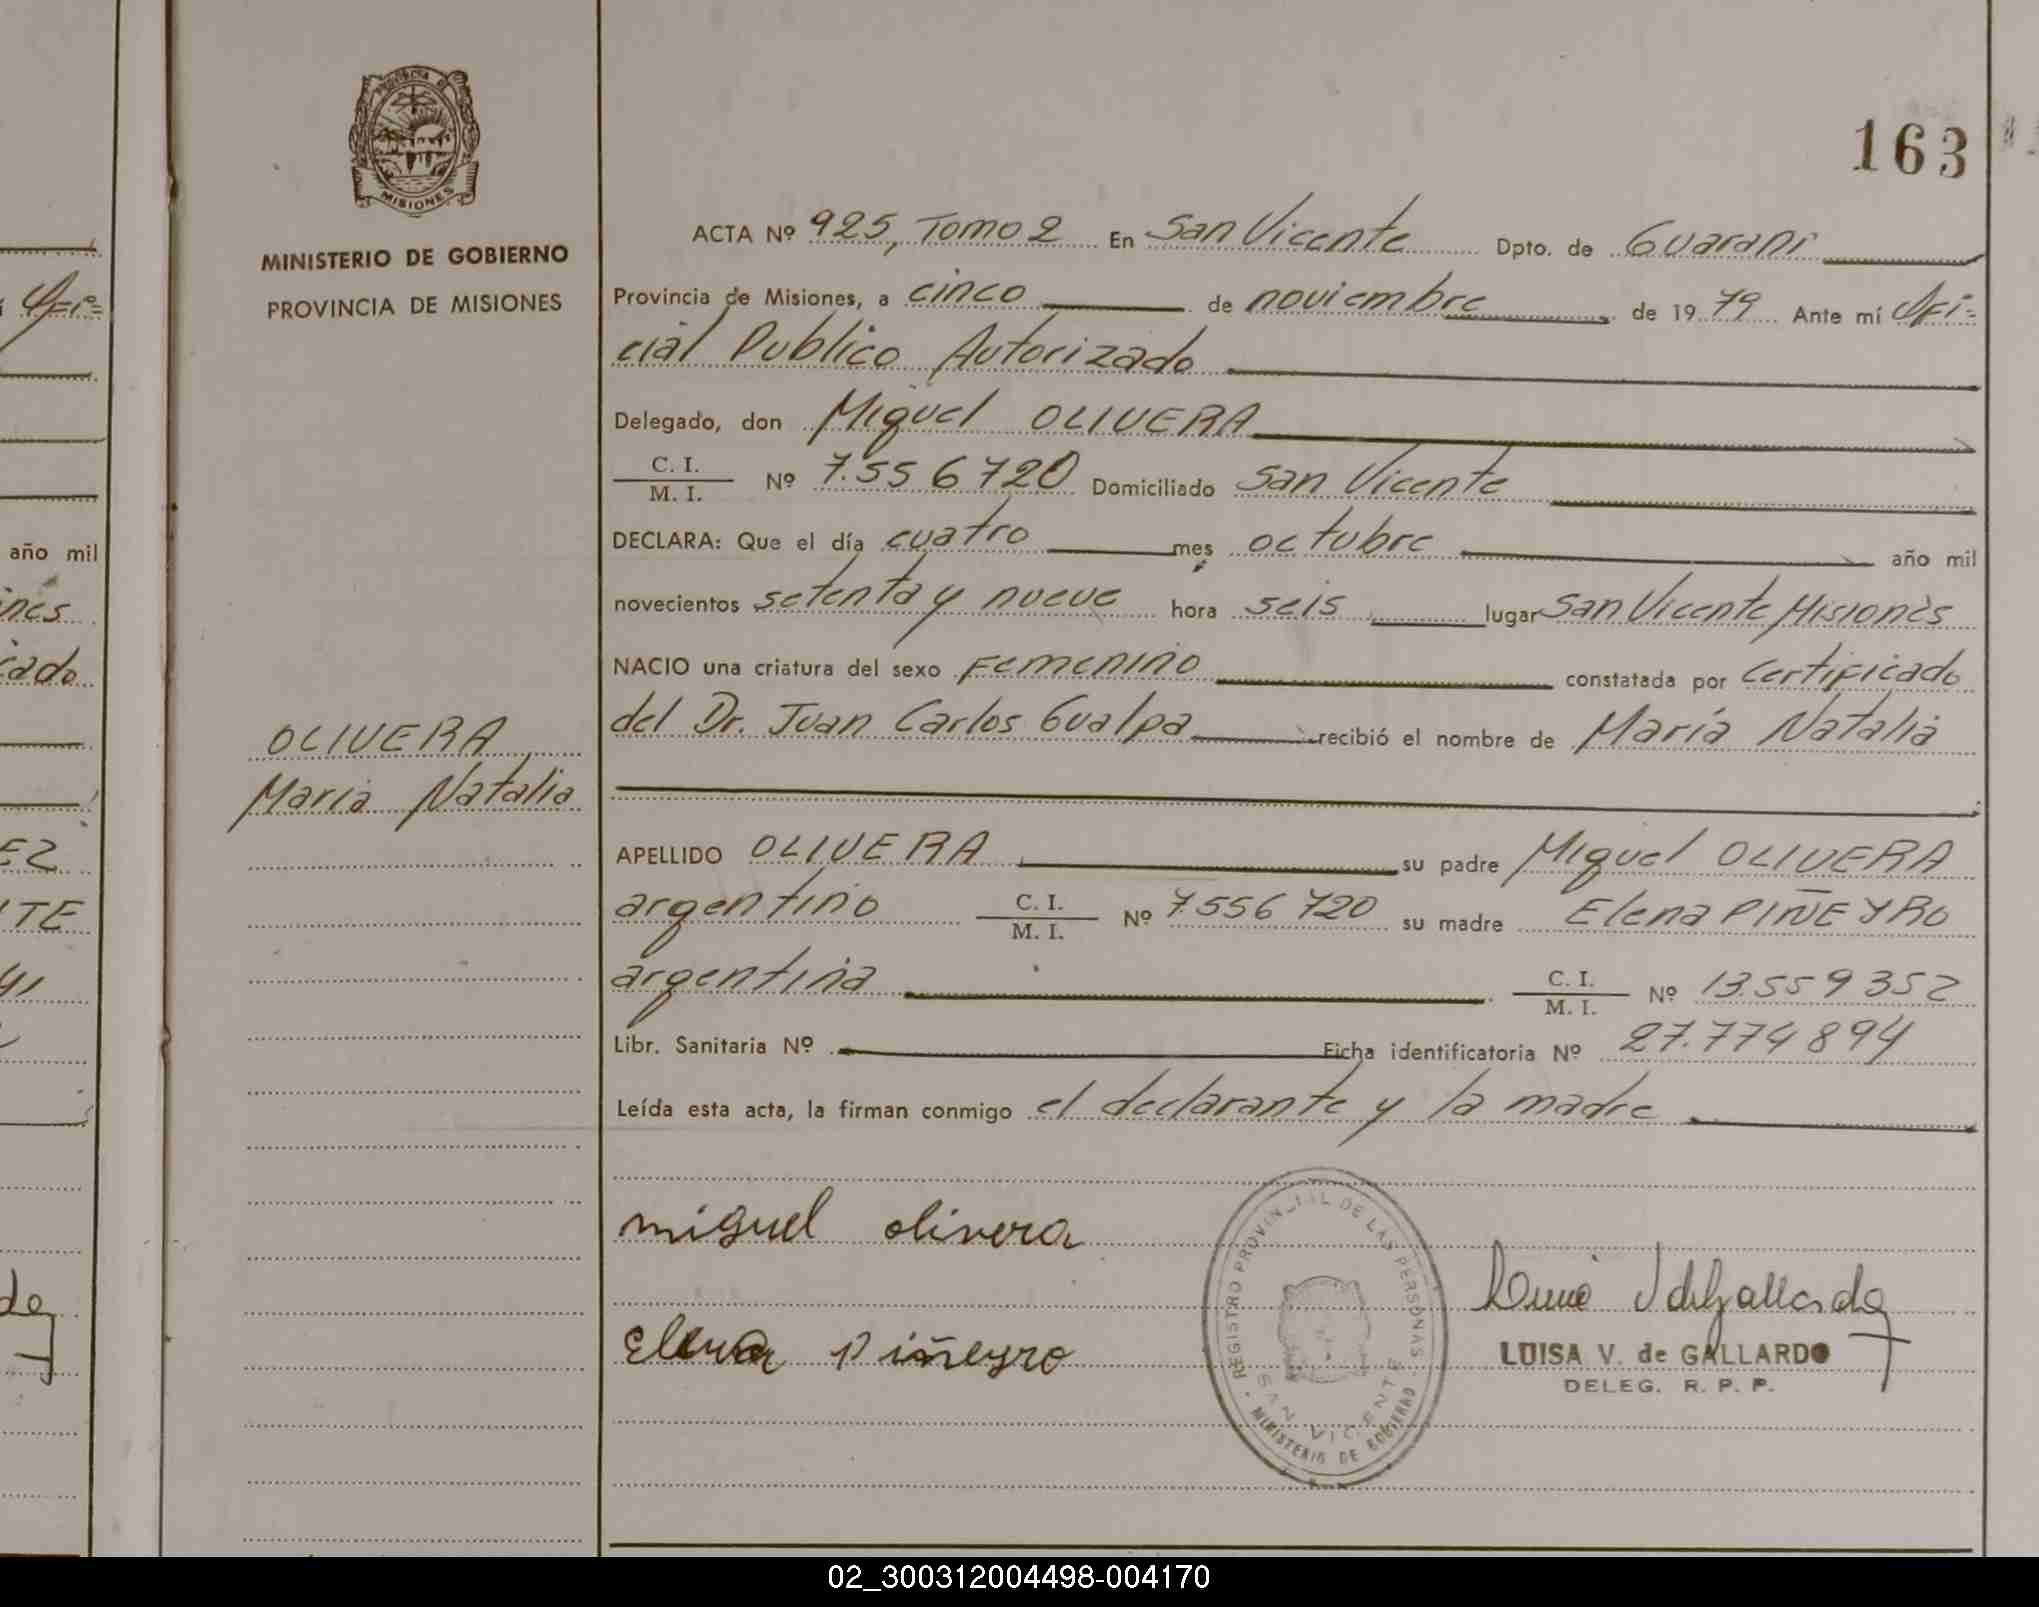 163
PROVINCIA DE
MISIONES
MINISTERIO DE GOBIERNO
PROVINCIA DE MISIONES
OLIVERA
Maria Natalia
ACTA Nº 925, Tomo 2 En San Vicente Dpto. de Guaraní
Provincia de Misiones, a cinco de noviembre de 19 79 Ante mí Ofi=
cial Publico Autorizado
Delegado, don Miguel OLIVERA
C. I.
M. I. Nº 7.556720 Domiciliado San Vicente
DECLARA: Que el día cuatro mes octubre año mil
novecientos setenta y nueve hora seis lugar San Vicente Misiones
NACIO una criatura del sexo Femenino constatada por certificado
del Dr. Juan Carlos Gualpa recibió el nombre de María Natalia
APELLIDO OLIVERA su padre Miguel OLIVERA
argentino C. I. M. I. Nº 7.556720 su madre Elena PIÑEYRO
argentina C. I. M. I. Nº 13.559352
Libr. Sanitaria Nº Ficha identificatoria Nº 27.774894
Leída esta acta, la firman conmigo el declarante y la madre
miguel olivera
Elena Piñeyro
REGISTRO PROVINCIAL DE LAS PERSONAS
SAN VICENTE
MINISTERIO DE GOBIERNO
LUISA V. de GALLARDO
DELEG. R. P. P.
año mil
02_300312004498-004170